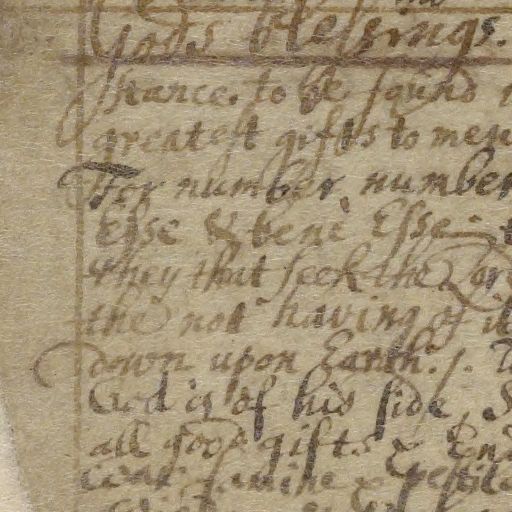 Gods blessings.
stance, to be found
greatest gifts to men
For number, number
esse & bene Esse
they that seek the Lord
the not having of it
down upon Earth.
God is of his side,
all good gifts & End
war famine & pestile